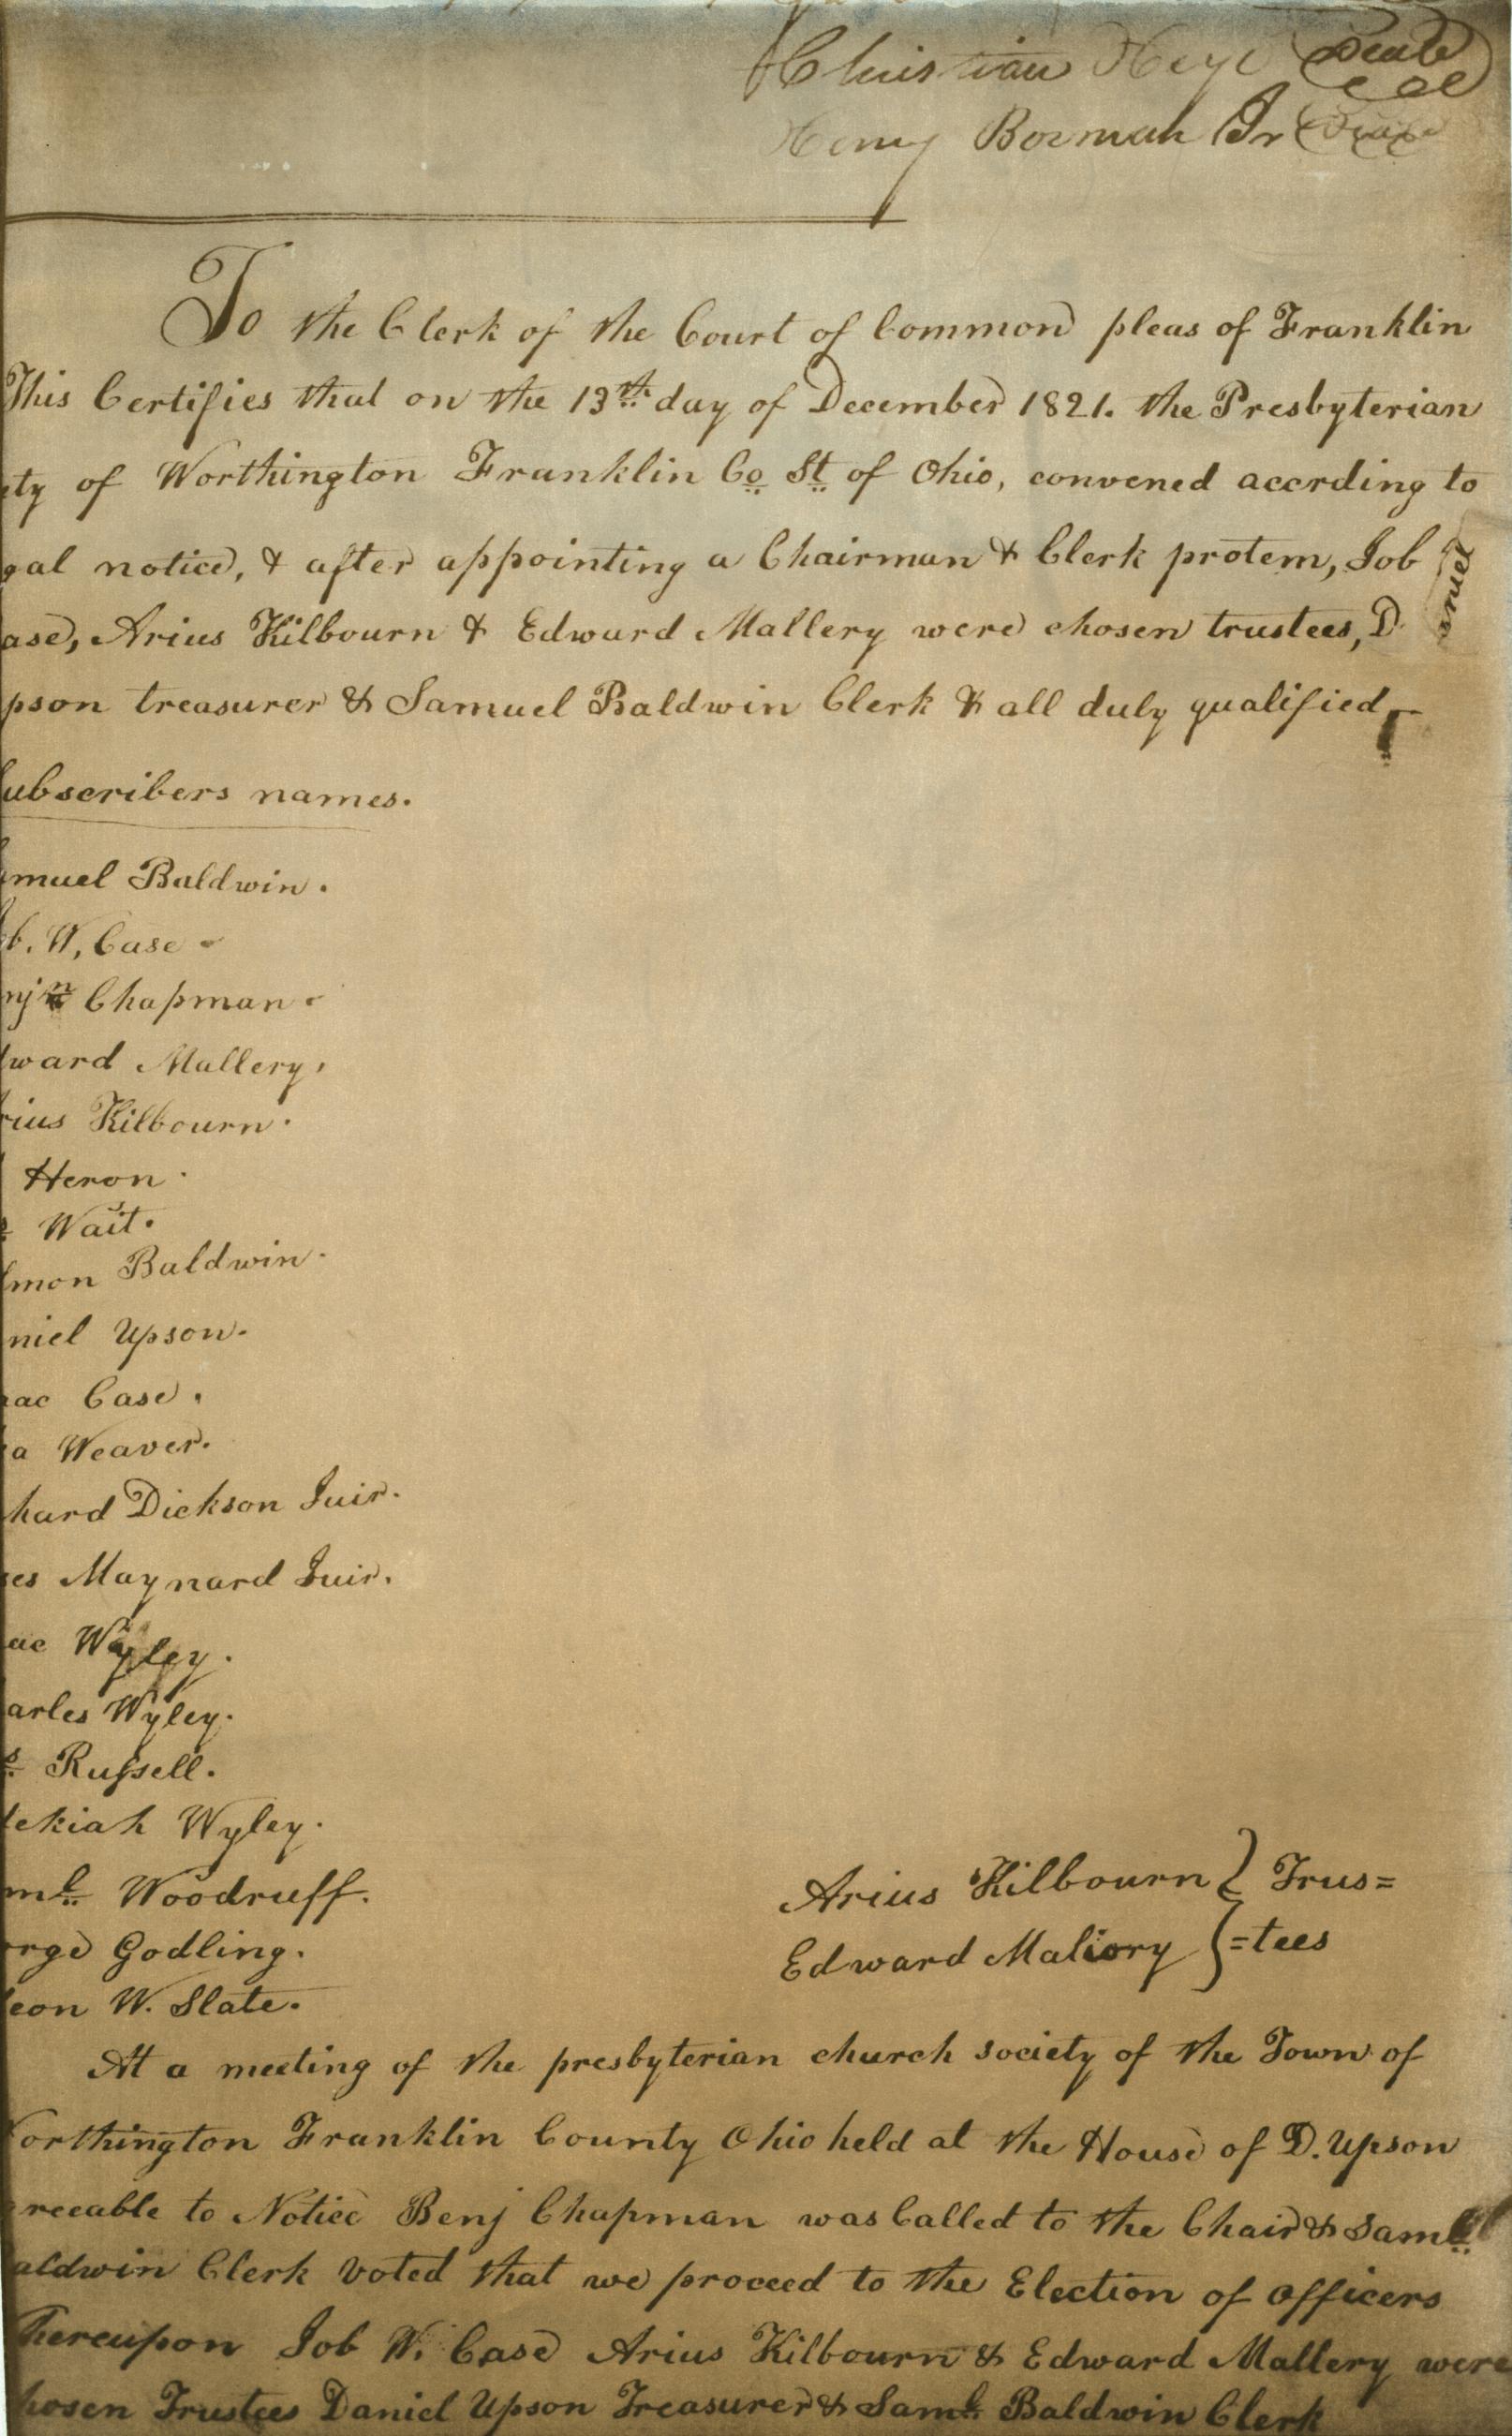 Christian Heyl Seal
Henry Borman Jr Seal
To the Clerk of the Court of Common pleas of Franklin
This Certifies that on the 13th day of December 1821. the Presbyterian
ety of Worthington Franklin Co St of Ohio, convened accrding to
gal notice, & after appointing a Chairman & Clerk protem, Job
ase, Arius Kilbourn & Edward Mallery were chosen trustees, D
pson treasurer & Samuel Baldwin Clerk & all duly qualified,
ubscribers names.
muel Baldwin.
b. W, Case
njn Chapman
ward Mallery,
rius Kilbourn.
Heron.
Wait.
lmon Baldwin.
niel Upson.
aac Case.
a Weaver.
hard Dickson Juir.
ses Maynard Juir.
ac Wyley.
arles Wyley.
s Russell.
dekiah Wyley.
ml Woodruff.
orge Godling.
eon W. Slate.
Arius Kilbourn } Trus=
Edward Mallory } =tees
At a meeting of the presbyterian church society of the Town of
Worthington Franklin County Ohio held at the House of D. Upson
greeable to Notice Benj Chapman was Called to the Chair & Saml
aldwin Clerk Voted that we proceed to the Election of officers
Thereupon Job W. Case Arius Kilbourn & Edward Mallery were
hosen Trustees Daniel Upson Treasurer & Saml Baldwin Clerk